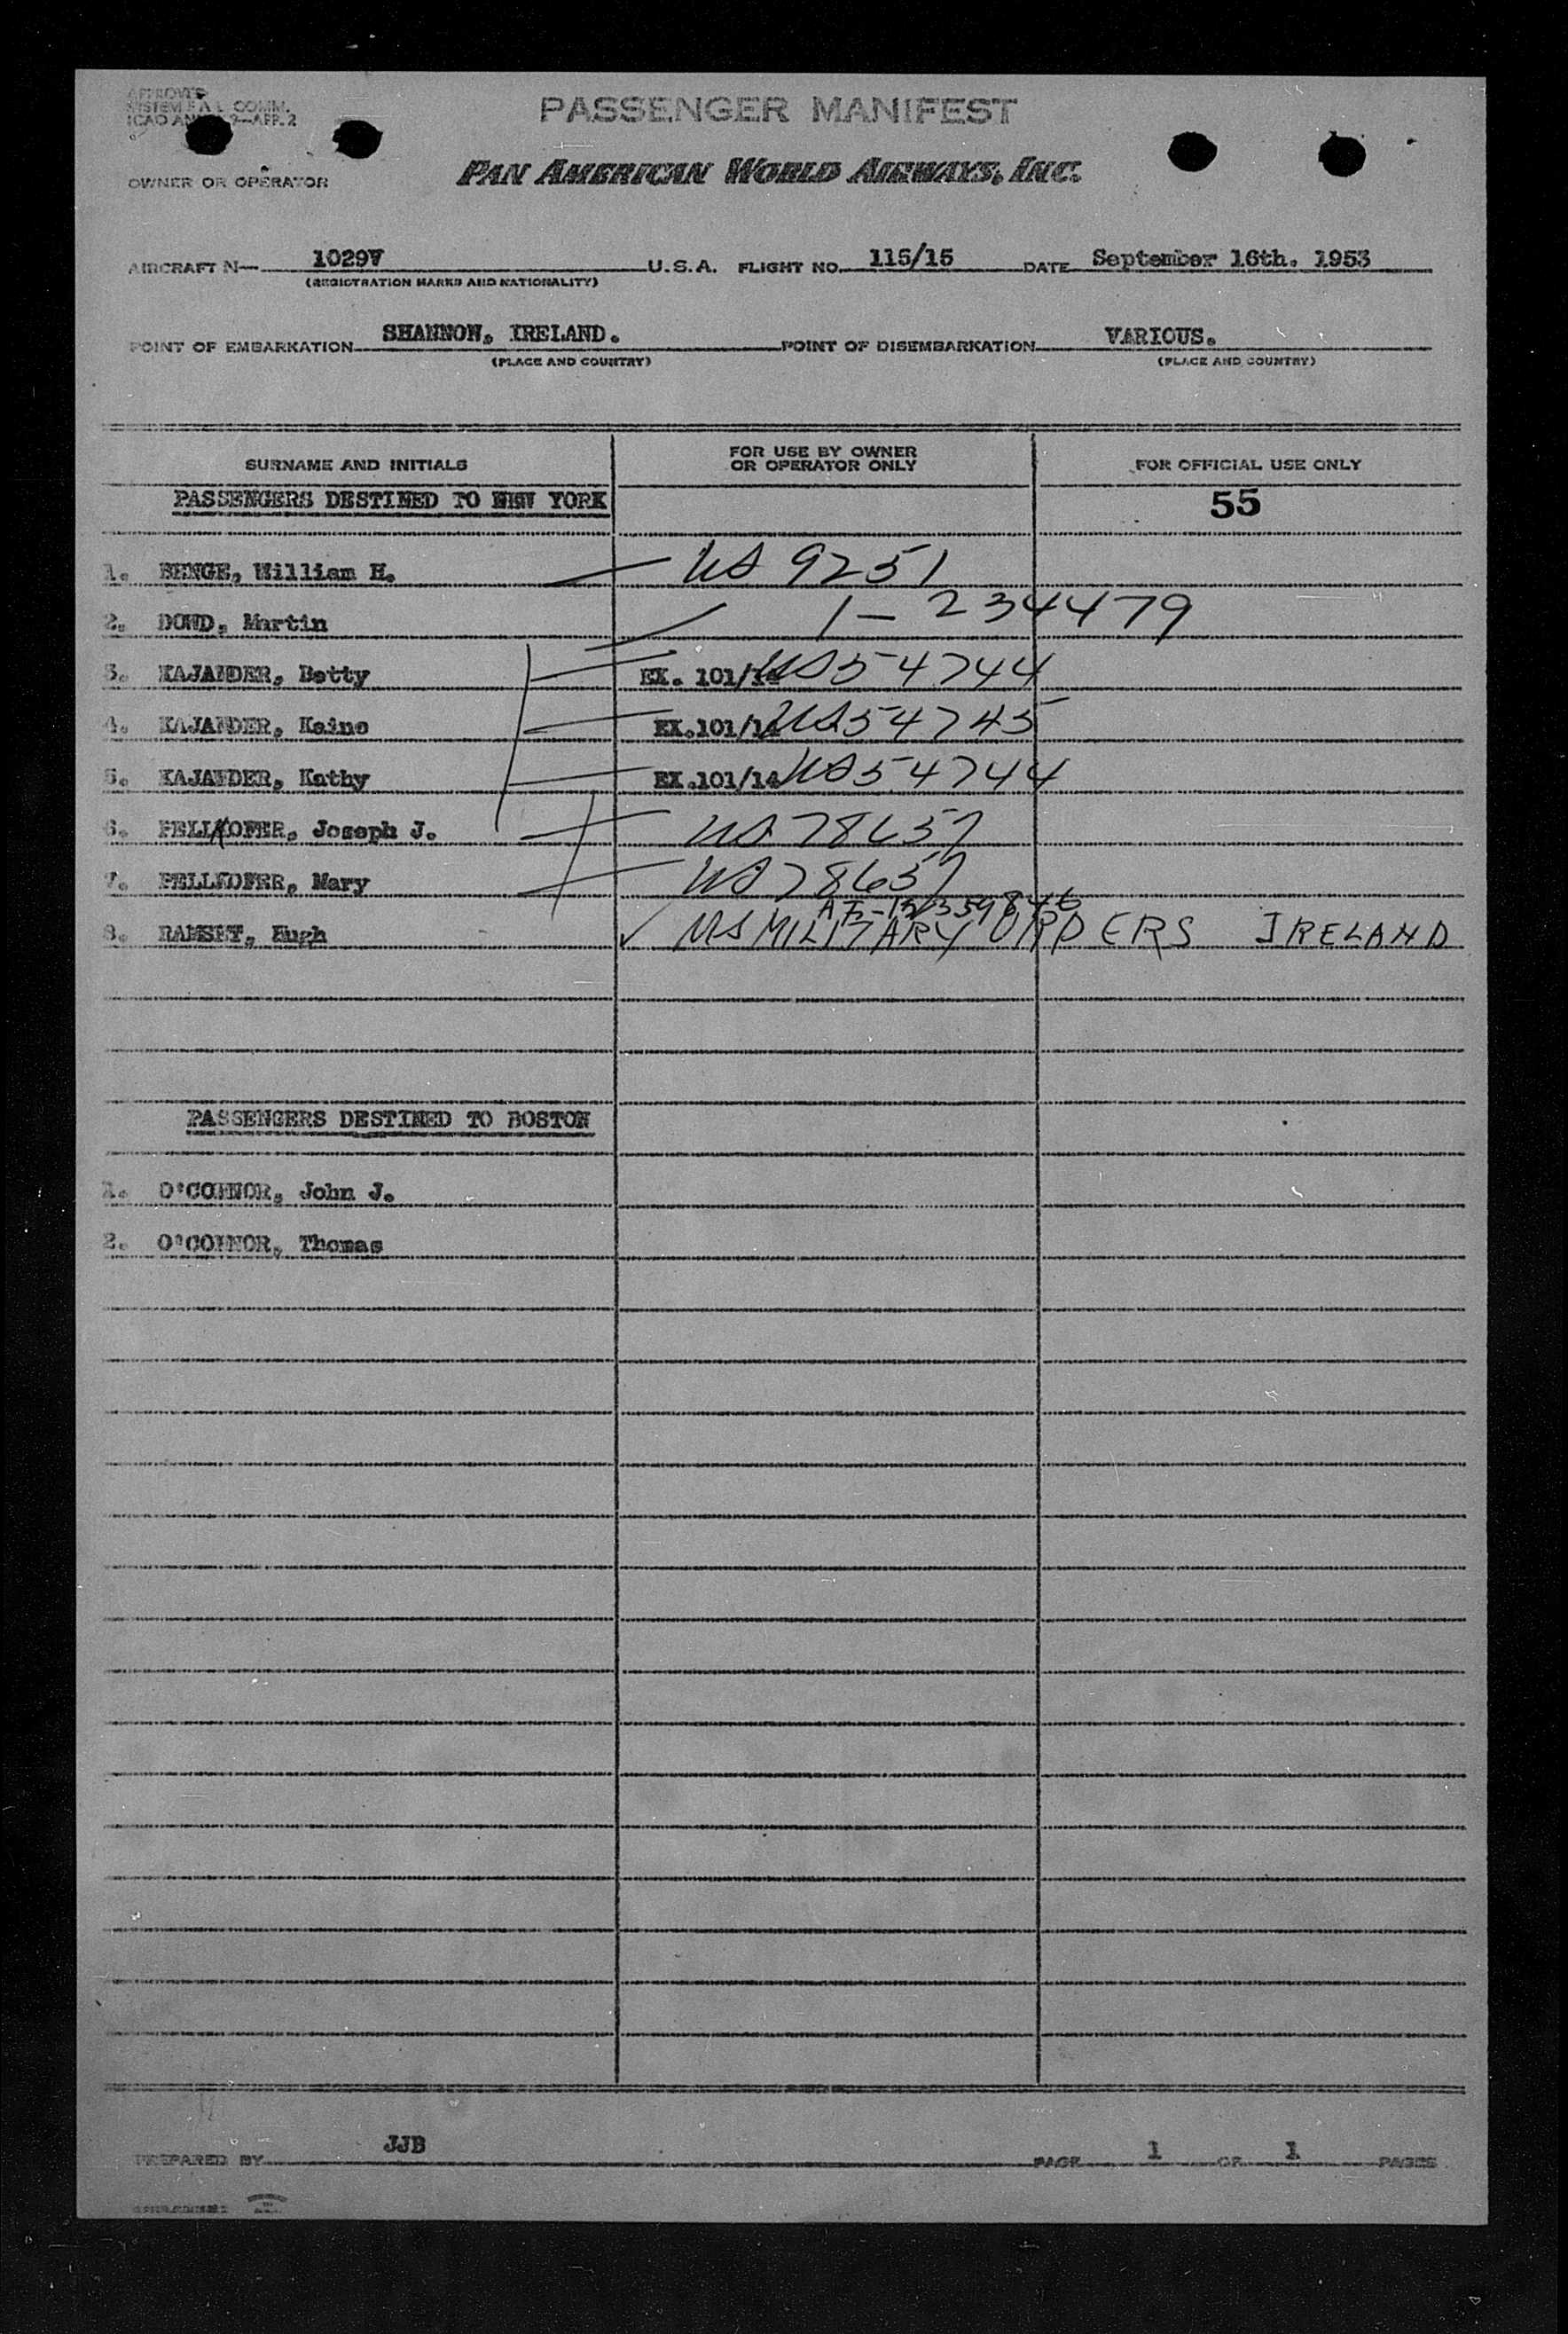 APPROVED
SYSTEM F A L COMM.
ICAO ANNEX 9—APP. 2
PASSENGER MANIFEST
OWNER OR OPERATOR
PAN AMERICAN WORLD AIRWAYS, INC.
AIRCRAFT N— 1029V U.S.A. FLIGHT NO. 115/15 DATE September 16th. 1953
(REGISTRATION MARKS AND NATIONALITY)
POINT OF EMBARKATION SHANNON, IRELAND. POINT OF DISEMBARKATION VARIOUS.
(PLACE AND COUNTRY) (PLACE AND COUNTRY)
SURNAME AND INITIALS FOR USE BY OWNER OR OPERATOR ONLY FOR OFFICIAL USE ONLY
PASSENGERS DESTINED TO NEW YORK 55
1. BENGE, William H. US 9251
2. DOWD, Martin 1-234479
3. KAJANDER, Betty EX. 101/14 US 54744
4. KAJANDER, Kaino EX.101/14 US 54745
5. KAJANDER, Kathy EX.101/14 US 54744
6. FELLKOFER, Joseph J. US 78657
7. FELLKOFER, Mary US 78657
8. RAMSEY, Hugh ✓ US MILITARY ORDERS IRELAND
PASSENGERS DESTINED TO BOSTON
1. O'CONNOR, John J.
2. O'CONNOR, Thomas
PREPARED BY JJB PAGE 1 OF 1 PAGES